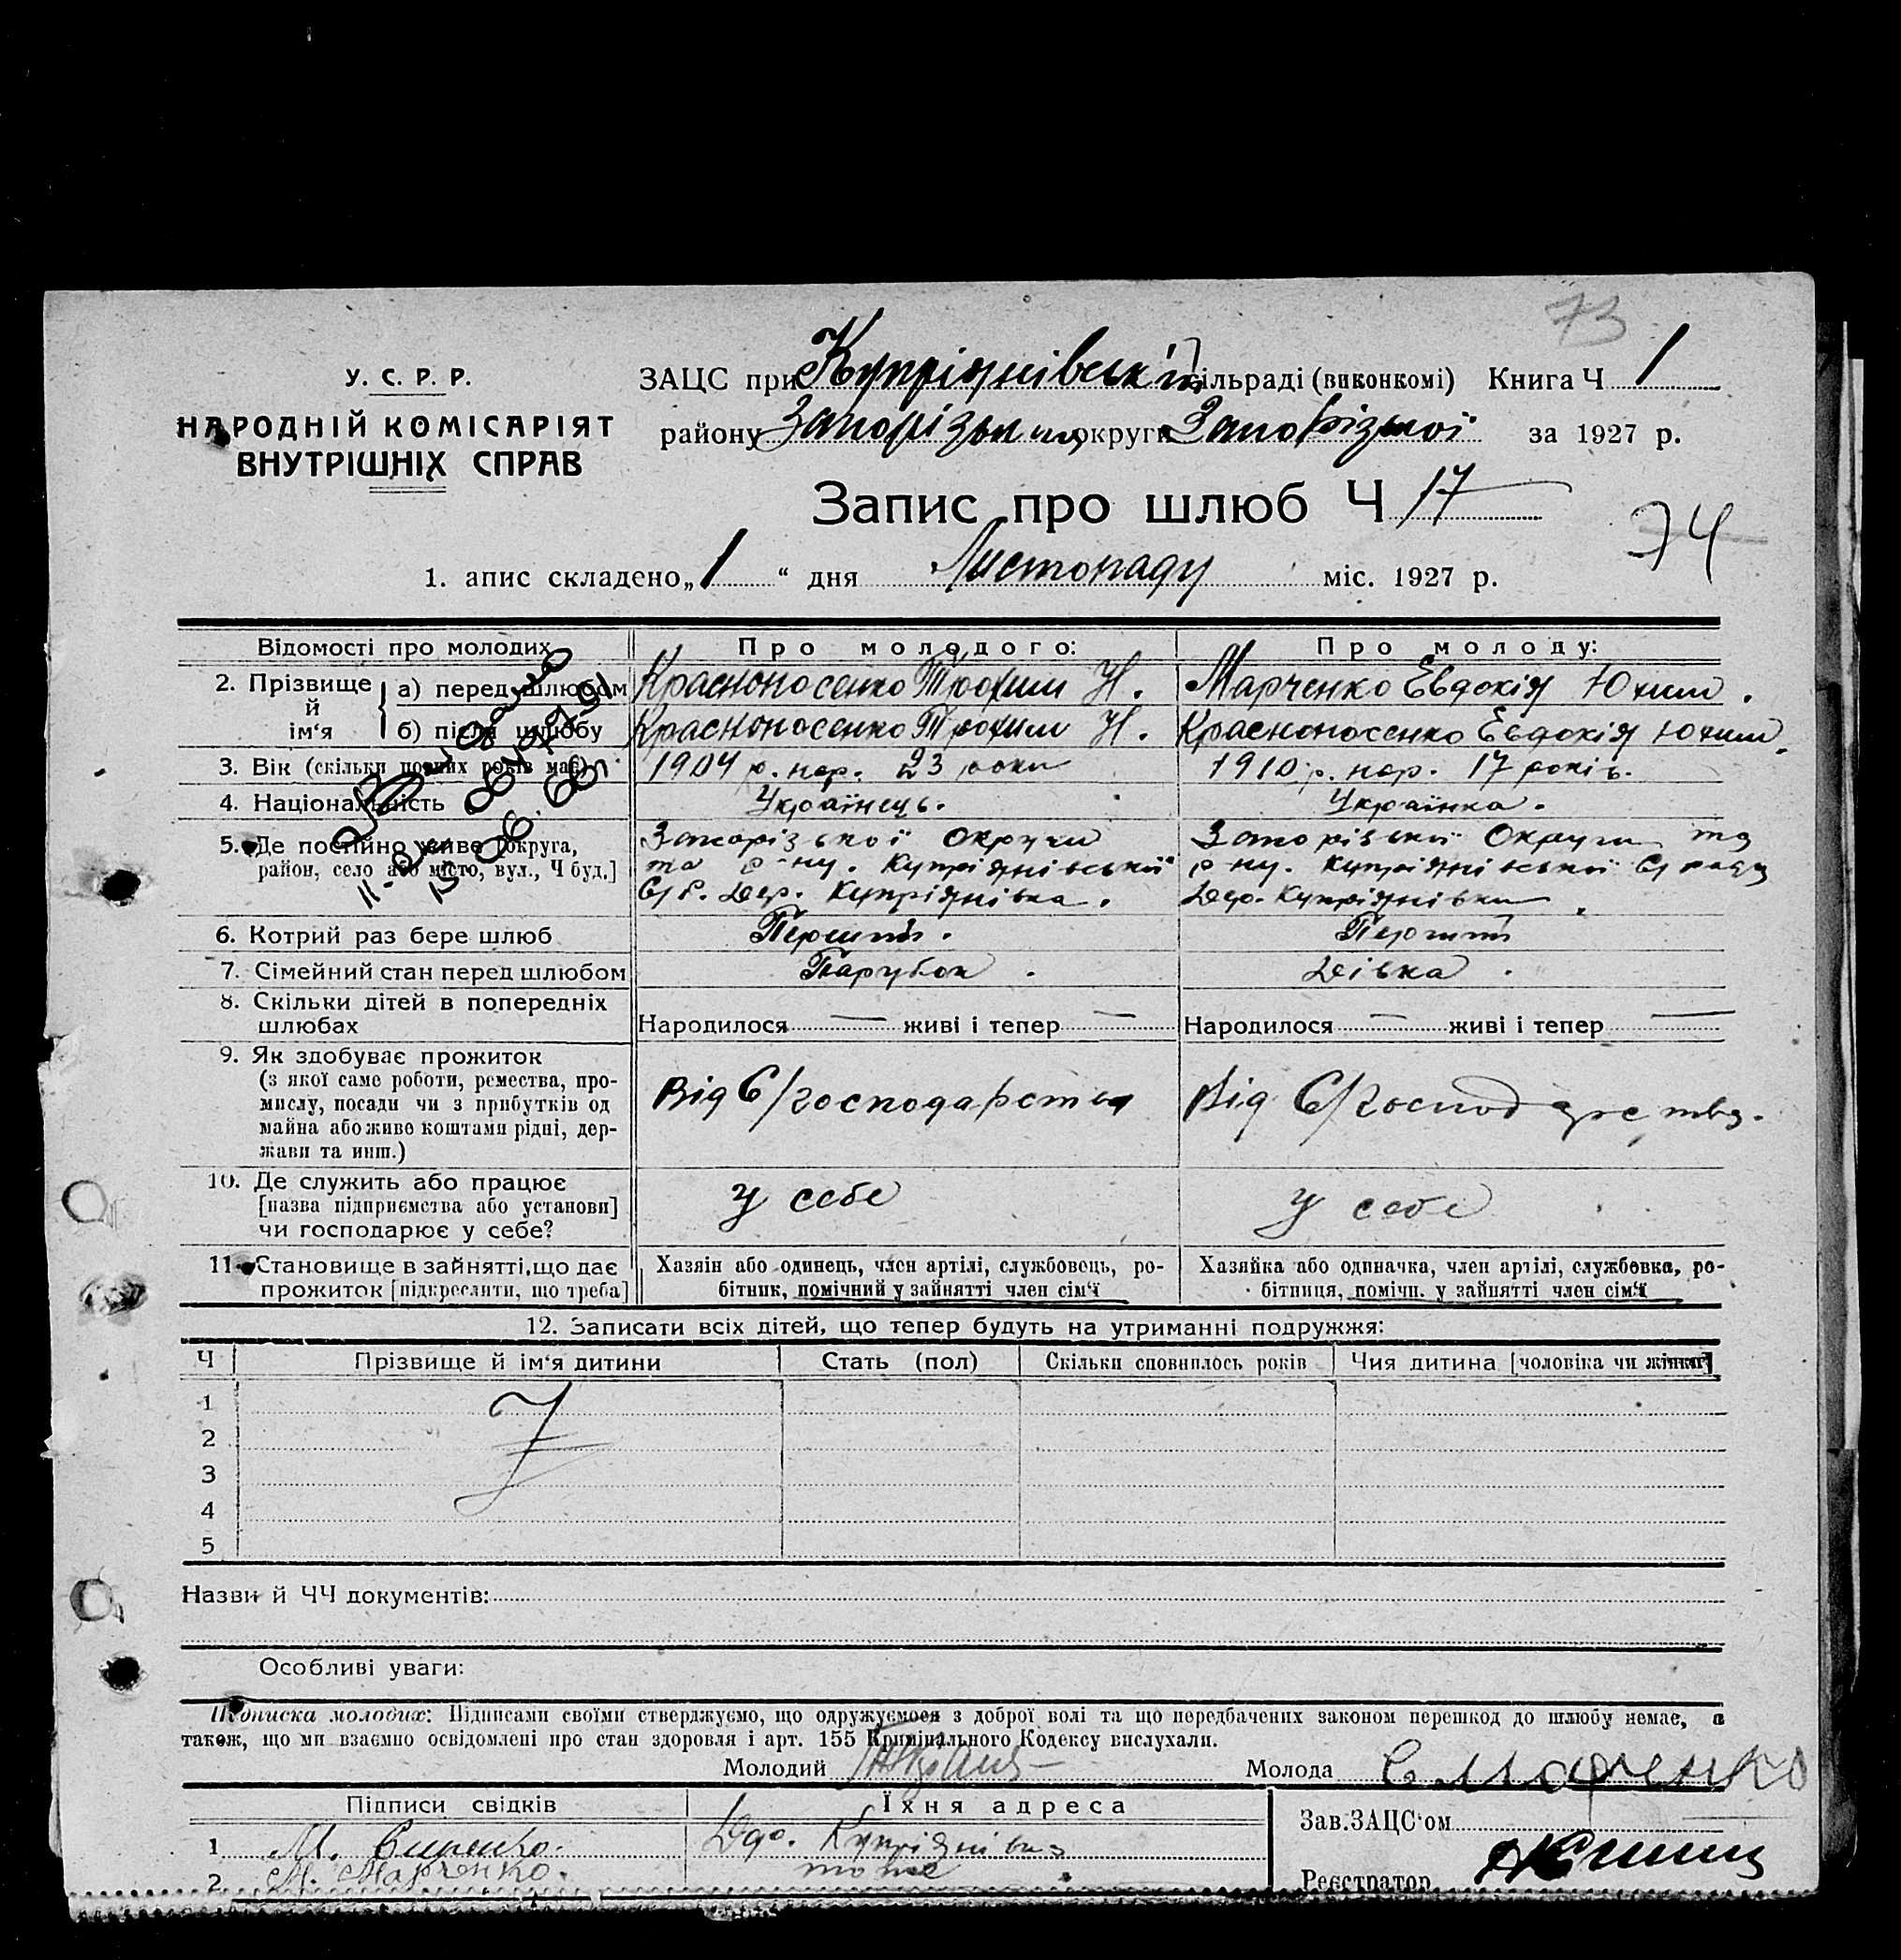 73
У. С. Р. Р.
НАРОДНІЙ КОМІСАРІЯТ
ВНУТРІШНІХ СПРАВ
ЗАЦС при Купріянівській сільраді (виконкомі) Книга Ч 1
району Запорізьк округи Запорізької за 1927 р.
Запис про шлюб Ч 17
74
1. апис складено „1“ дня Листопаду міс. 1927 р.
Відомості про молодих Про молодого: Про молоду:
2. Прізвище й ім‘я
а) перед шлюбом Красноносенко Трохим Н. Марченко Евдокія Юхим.
б) після шлюбу Красноносенко Трохим Н. Красноносенко Евдокія Юхим.
3. Вік (скільки повних років має) 1904 р. нар. 23 роки 1910 р. нар. 17 років.
4. Національність Українець. Українка.
5. Де постійно живе [округа, район, село або місто, вул., Ч буд.]
Запорізької Округи
та р-ну. Купріянівської
С/Р. Дер. Купріянівка.
Запорізької Округи та
р-ну. Купріянівської С/раду
Дер. Купріянівки
6. Котрий раз бере шлюб Перший. Перший
7. Сімейний стан перед шлюбом Парубок. Дівка.
8. Скільки дітей в попередніх шлюбах
Народилося — живі і тепер — Народилося — живі і тепер —
9. Як здобуває прожиток
(з якої саме роботи, ремества, про-
мислу, посади чи з прибутків од
майна або живе коштами рідні, дер-
жави та инш.)
Від С/господарства Від С/господарства.
10. Де служить або працює
[назва підприємства або установи]
чи господарює у себе?
у себе у себе
11. Становище в зайнятті, що дає
прожиток [підкреслити, що треба]
Хазяін або одинець, член артілі, службовець, ро-
бітник, помічний у зайнятті член сім‘ї
Хазяйка або одиначка, член артілі, службовка, ро-
бітниця, помічн. у зайнятті член сім‘ї
12. Записати всіх дітей, що тепер будуть на утриманні подружжя:
Ч Прізвище й ім‘я дитини Стать (пол) Скільки сповнилось років Чия дитина [чоловіка чи жінки]
1
2
3
4
5
Назви й ЧЧ документів:
Особливі уваги:
Підписка молодих: Підписами своїми стверджуємо, що одружуємося з доброї волі та що передбачених законом перешкод до шлюбу немає, а
також, що ми взаємно освідомлені про стан здоровля і арт. 155 Кримінального Кодексу вислухали.
Молодий Молода Е Марченко
Підписи свідків Їхня адреса
1 М. Дер. Купріянівка
2 М. Марченко. тоже
Зав.ЗАЦС‘ом
Реєстратор